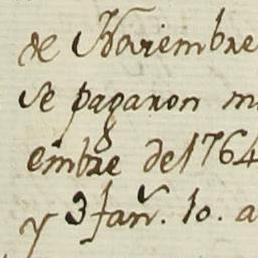 de Noviembre
se pagaron m
embre de 1764
y 3 Jan. 10. a